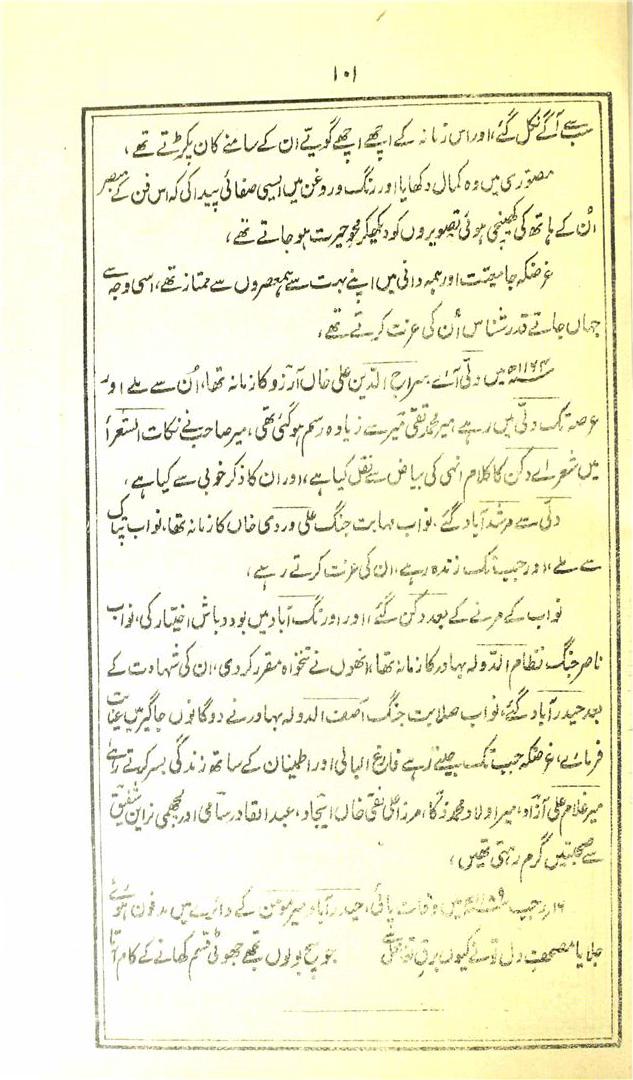 ۱۰۱
سب سے آگے نکل گئے، اور اس زمانہ کے اچھے اچھے گویّے ان کے سامنے کان پکڑتے تھے،
مصوّری میں وہ کمال دکھایا اور رنگ و روغن میں ایسی صفائی پیدا کی کہ اس فن کے مبصر
اُن کے ہاتھ کی کھینچی ہوئی تصویروں کو دیکھکر محو حیرت ہو جاتے تھے،
غرضکہ جامعیّت اور ہمہ دانی میں اپنے بہت سے ہمعصروں سے ممتاز تھے، اسی وجہ سے
جہاں جاتے قدر شناس اُن کی عزت کرتے تھے،
۱۱۶۴ھ میں دلّی آئے سراج الدّین علی خاں آرزو کا زمانہ تھا، اُن سے ملے اور
عرصہ تک دلّی میں رہے میر محمد تقی میر سے زیادہ رسم ہو گئی تھی، میر صاحب نے نکات الشعرأ
میں شعراے دکن کا کلام انہی کی بیاض سے نقل کیا ہے، اور ان کا ذکر خوبی سے کیا ہے،
دلّی سے مرشد آباد گئے، نواب مہابت جنگ علی وردی خاں کا زمانہ تھا، نواب تپاک
سے ملے، اور جب تک زندہ رہے، ان کی عزت کرتے رہے،
نواب کے مرنے کے بعد دکن گئے، اور اورنگ آباد میں بود و باش اختیار کی، نواب
ناصر جنگ نظام الدّولہ بہادر کا زمانہ تھا، انھوں نے تنخواہ مقرر کر دی، ان کی شہادت کے
بعد حیدر آباد گئے، نواب صلابت جنگ آصف الدولہ بہادر نے دو گانوں جاگیر میں عنایت
فرمائے، غرضکہ جب تک جیتے رہے فارغ البالی اور اطمینان کے ساتھ زندگی بسر کرتے رہے
میر غلام علی آزاد، میر اولاد محمد ذکا، مرزا علی نقی خاں ایجاد، عبد القادر سامی اور لچھمی نراین شفیق
سے صحبتیں گرم رہتی تھیں،
۱۶ رجب میں وفات پائی، حیدر آباد میر مومن کے دائرے میں مدفون ہوئے
جلایا مصحفِ دل تونے کیوں برقِ تغافل سے جو سچ بولوں تجھے جھوٹی قسم کھانے کے کام آتا